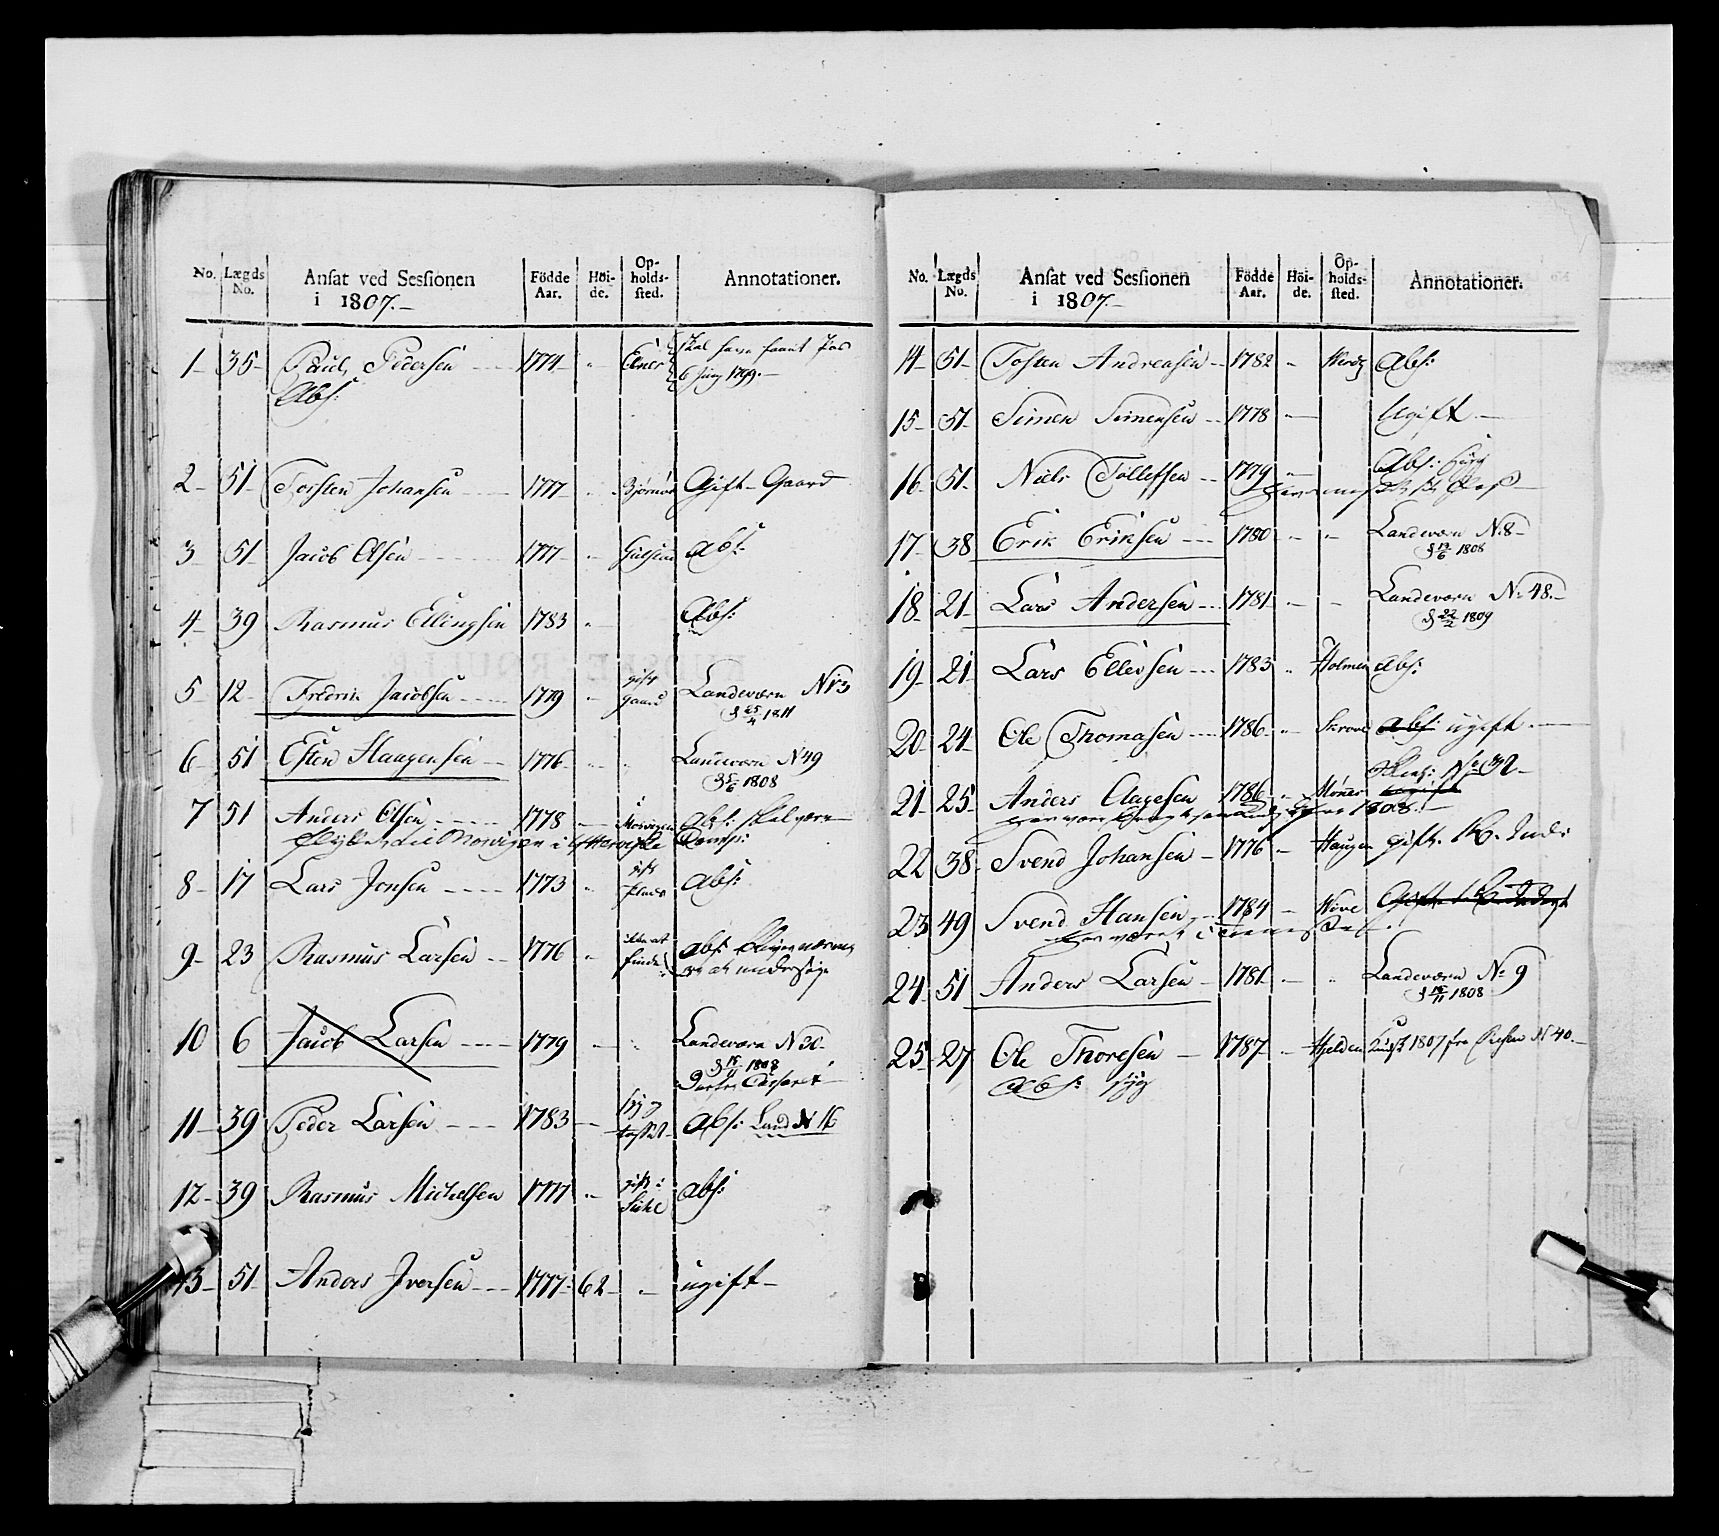 No. Lægds No. Ansat ved Sessionen i 1807.- Födde Aar. Höide. Opholdssted. Annotationer.
1- 35- Paul Pedersen 1774- skal have faaet Pas
Abs: 6 Juny 1799.-
2- 51- Torsten Johansen 1777- Gift-Gaard
3- 51- Jacob Olsen 1777- Abs:
4- 39 Rasmus Ellingsen 1783 Abs:
5- 12- Fredrik Jacobsen 1779 gift gaard Landeværn N 13
25/4 1811
6- 51 Esten Haagensen 1776- Landeværn N 49
5/6 1808
7 51 Anders Olsen 1778 Abs: skal være
8- 17 Lars Jensen 1773 gift Abs:
9- 23 Rasmus Larsen 1776 ikke at finde Abs:
at undersøge
10 6 Jacob Larsen 1779 Landeværn N 30-
15/11 1808
11- 39 Peder Larsen 1783- Abs: Land N 16
12- 39 Rasmus Michelsen 1777 gift: Abs:
13- 51 Anders Iversen 1777- 62- ugift-
No. Lægds No. Ansat ved Sessionen i 1807.- Födde Aar. Höide. Opholdssted. Annotationer.
14- 51- Tosten Andreasen 1782 Abs:
15- 51- Simen Simensen 1778 Ugift-
16- 51- Niels Tollefsen 1779 Abs:
17- 38 Erik Eriksen 1780 Landeværn N. 8-
13/6 1808
18- 21- Lars Andersen 1781 Landeværn N. 48.-
22/2 1809
19- 21- Lars Ellevsen 1783 Holmen Abs:
20- 24- Ole Thomasen 1786 Abs: ugift
21- 25- Anders Aagesen 1786 No 32-
1808.-
22 38- Svend Johansen 1776 Haugen gift.
23 49 Svend Hansen 1784 Hove
24- 51 Anders Larsen 1781 Landeværn No 9
15/11 1808
25- 27 Ole Thoresen 1787 Hjelden 1807 fra N 40.-
Abs: syg